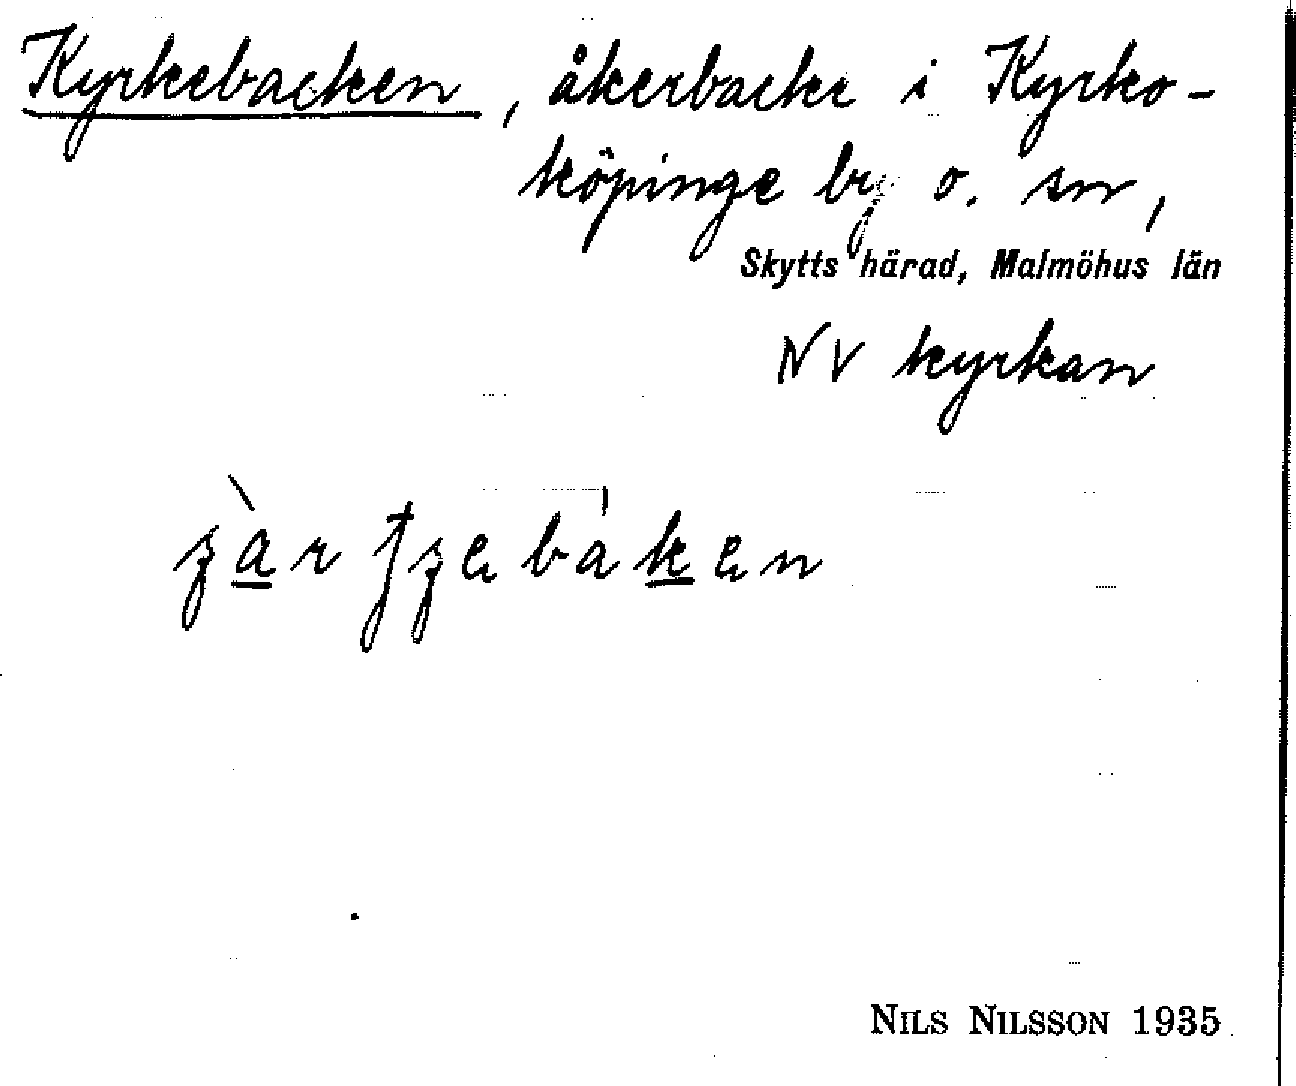 Kyrkebacken, åkerbacke i Kyrko-
köpinge by o. sn,
Skytts härad, Malmöhus län
NV kyrkan
NILS NILSSON 1935